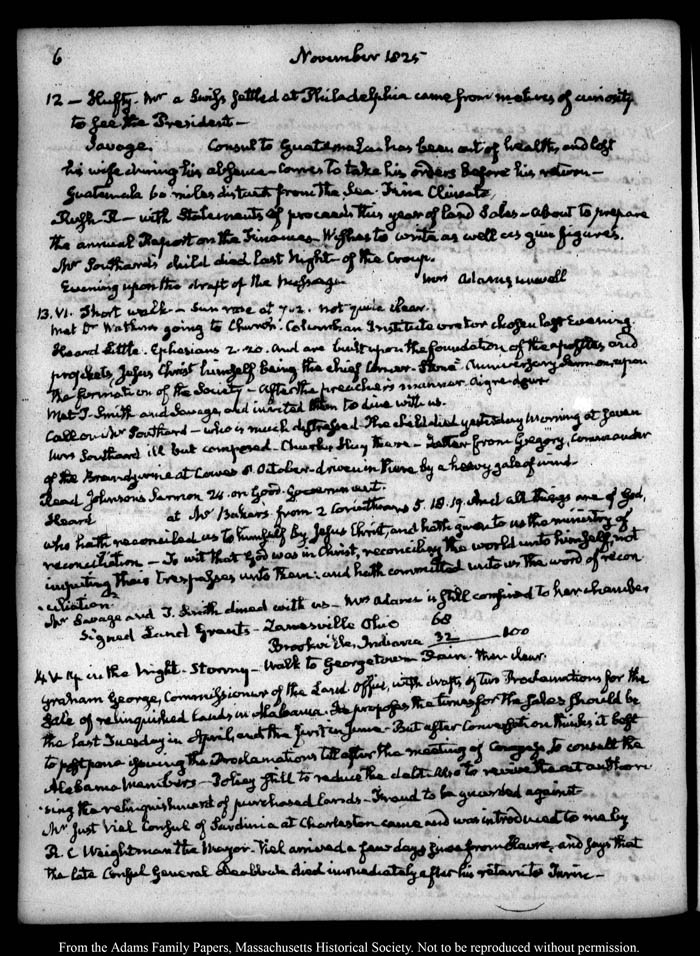 6 November 1825
12 — Hufty. Mr a Swiss settled at Philadelphia came from motives of curiosity
to see the President —
Savage. Consul to Guatemala has been out of health, and lost
his wife during his absence — Comes to take his orders before his return —
Guatemala 60 miles distant from the Sea — Fine Climate
Rush. R — with Statements of proceeds this year of land Sales — About to prepare
the annual Report on the Finances — Wishes to write as well as give figures.
Mr Southard's child died last Night — of the Croup.
Evening upon the draft of the Message Mrs Adams unwell
13. VI. Short walk — Sun rose at 7.2. not quite clear.
Met Dr Watkins going to Church. Columbian Institute orator chosen last Evening.
Heard Little. Ephesians 2.20. And are built upon the foundation of the apostles and
prophets, Jesus Christ himself being the chief Corner-Stone. Anniversary Sermon, upon
the formation of the Society — After the preacher's manner. Aigre-doux
Met J. Smith and Savage, and invited them to dine with us.
Call on Mr Southard — who is much distressed — The child died yesterday Morning at Seven
Mrs Southard ill but composed. Charles Hay there — Letter from Gregory, Commander
of the Brandywine at Cowes October — driven in there by a heavy gale of wind
Read Johnson's Sermon 24. on Good Government.
Heard at Mr Bakers from 2 Corinthians 5. 18. 19. And all things are of God,
who hath reconciled us to himself by Jesus Christ, and hath given to us the ministry of
reconciliation — To wit that God was in Christ, reconciling the world unto himself, not
imputing their trespasses unto them: and hath committed unto us the word of recon
ciliation.
Mr Savage and J. Smith dined with us — Mrs Adams is still confined to her chamber
Signed Land Grants — Zanesville Ohio 68
Brookville, Indiana 32 100
14. V. in the Night. Stormy — Walk to Georgetown Rain. then clear.
Graham George, Commissioner of the Land Office, with drafts of two Proclamations for the
Sale of relinquished lands in Alabama. He proposes the times for the Sales should be
the last Tuesday in April, and the first in June — But after Conversation thinks it best
to postpone issuing the Proclamations till after the meeting of Congress, to consult the
Alabama Members — Policy still to reduce the debt. Also to revive the act authori
sing the relinquishment of purchased lands — Fraud to be guarded against
Mr Just Vial Consul of Sardinia at Charleston came and was introduced to me by
R. C Weightman the Mayor. Vial arrived a few days since from Havre, and says that
the late Consul General died immediately after his return to Turin —
From the Adams Family Papers, Massachusetts Historical Society. Not to be reproduced without permission.